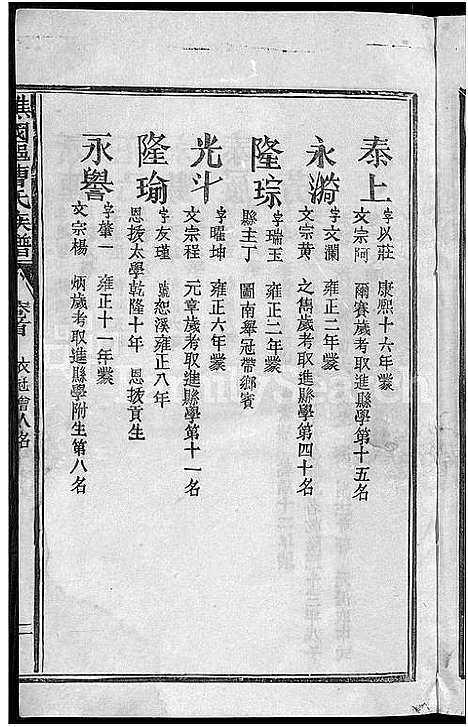 泰上
字以莊 康熙十六年蒙
文宗阿 爾賽歲考取進縣學第十五名
永漪
字文瀾 雍正二年蒙
文宗黃 之雋歲考取進縣學第四十名
隆琮
字瑞玉 雍正二年蒙
縣主丁 圖南舉冠帶鄉賓
光斗
字曜坤 雍正六年蒙
文宗程 元章歲考取進縣學第十一名
隆瑜
字友瑾 號恕溪雍正八年
恩拔太學乾隆十年 恩拔貢生
永譽
字肇一 雍正十一年蒙
文宗楊 炳歲考取進縣學附生第八名
譙國 曹氏族譜 卷首 衣冠 人名
二